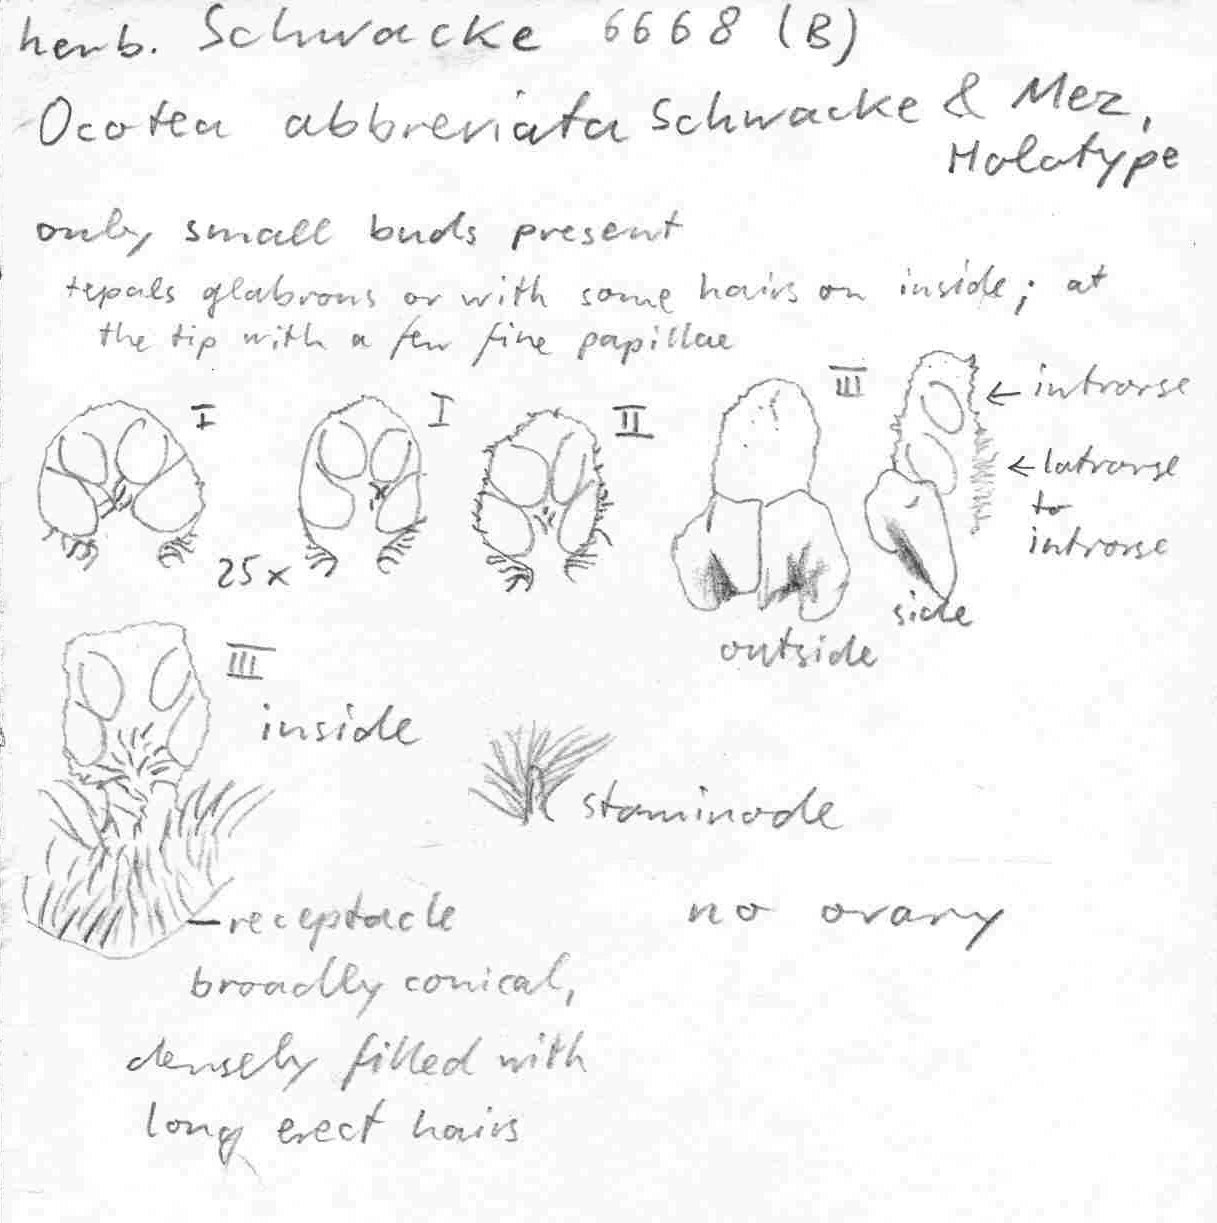 herb. Schwacke 6668 (B)
Ocotea abbreviata Schwacke & Mez,
Holotype
only small buds present
tepals glabrous or with some hairs on inside; at
the tip with a few fine papillae
I
I
II
III
← introrse
← latrorse
to
introrse
25x
side
outside
III
inside
staminode
receptacle
broadly conical,
densely filled with
long erect hairs
no ovary